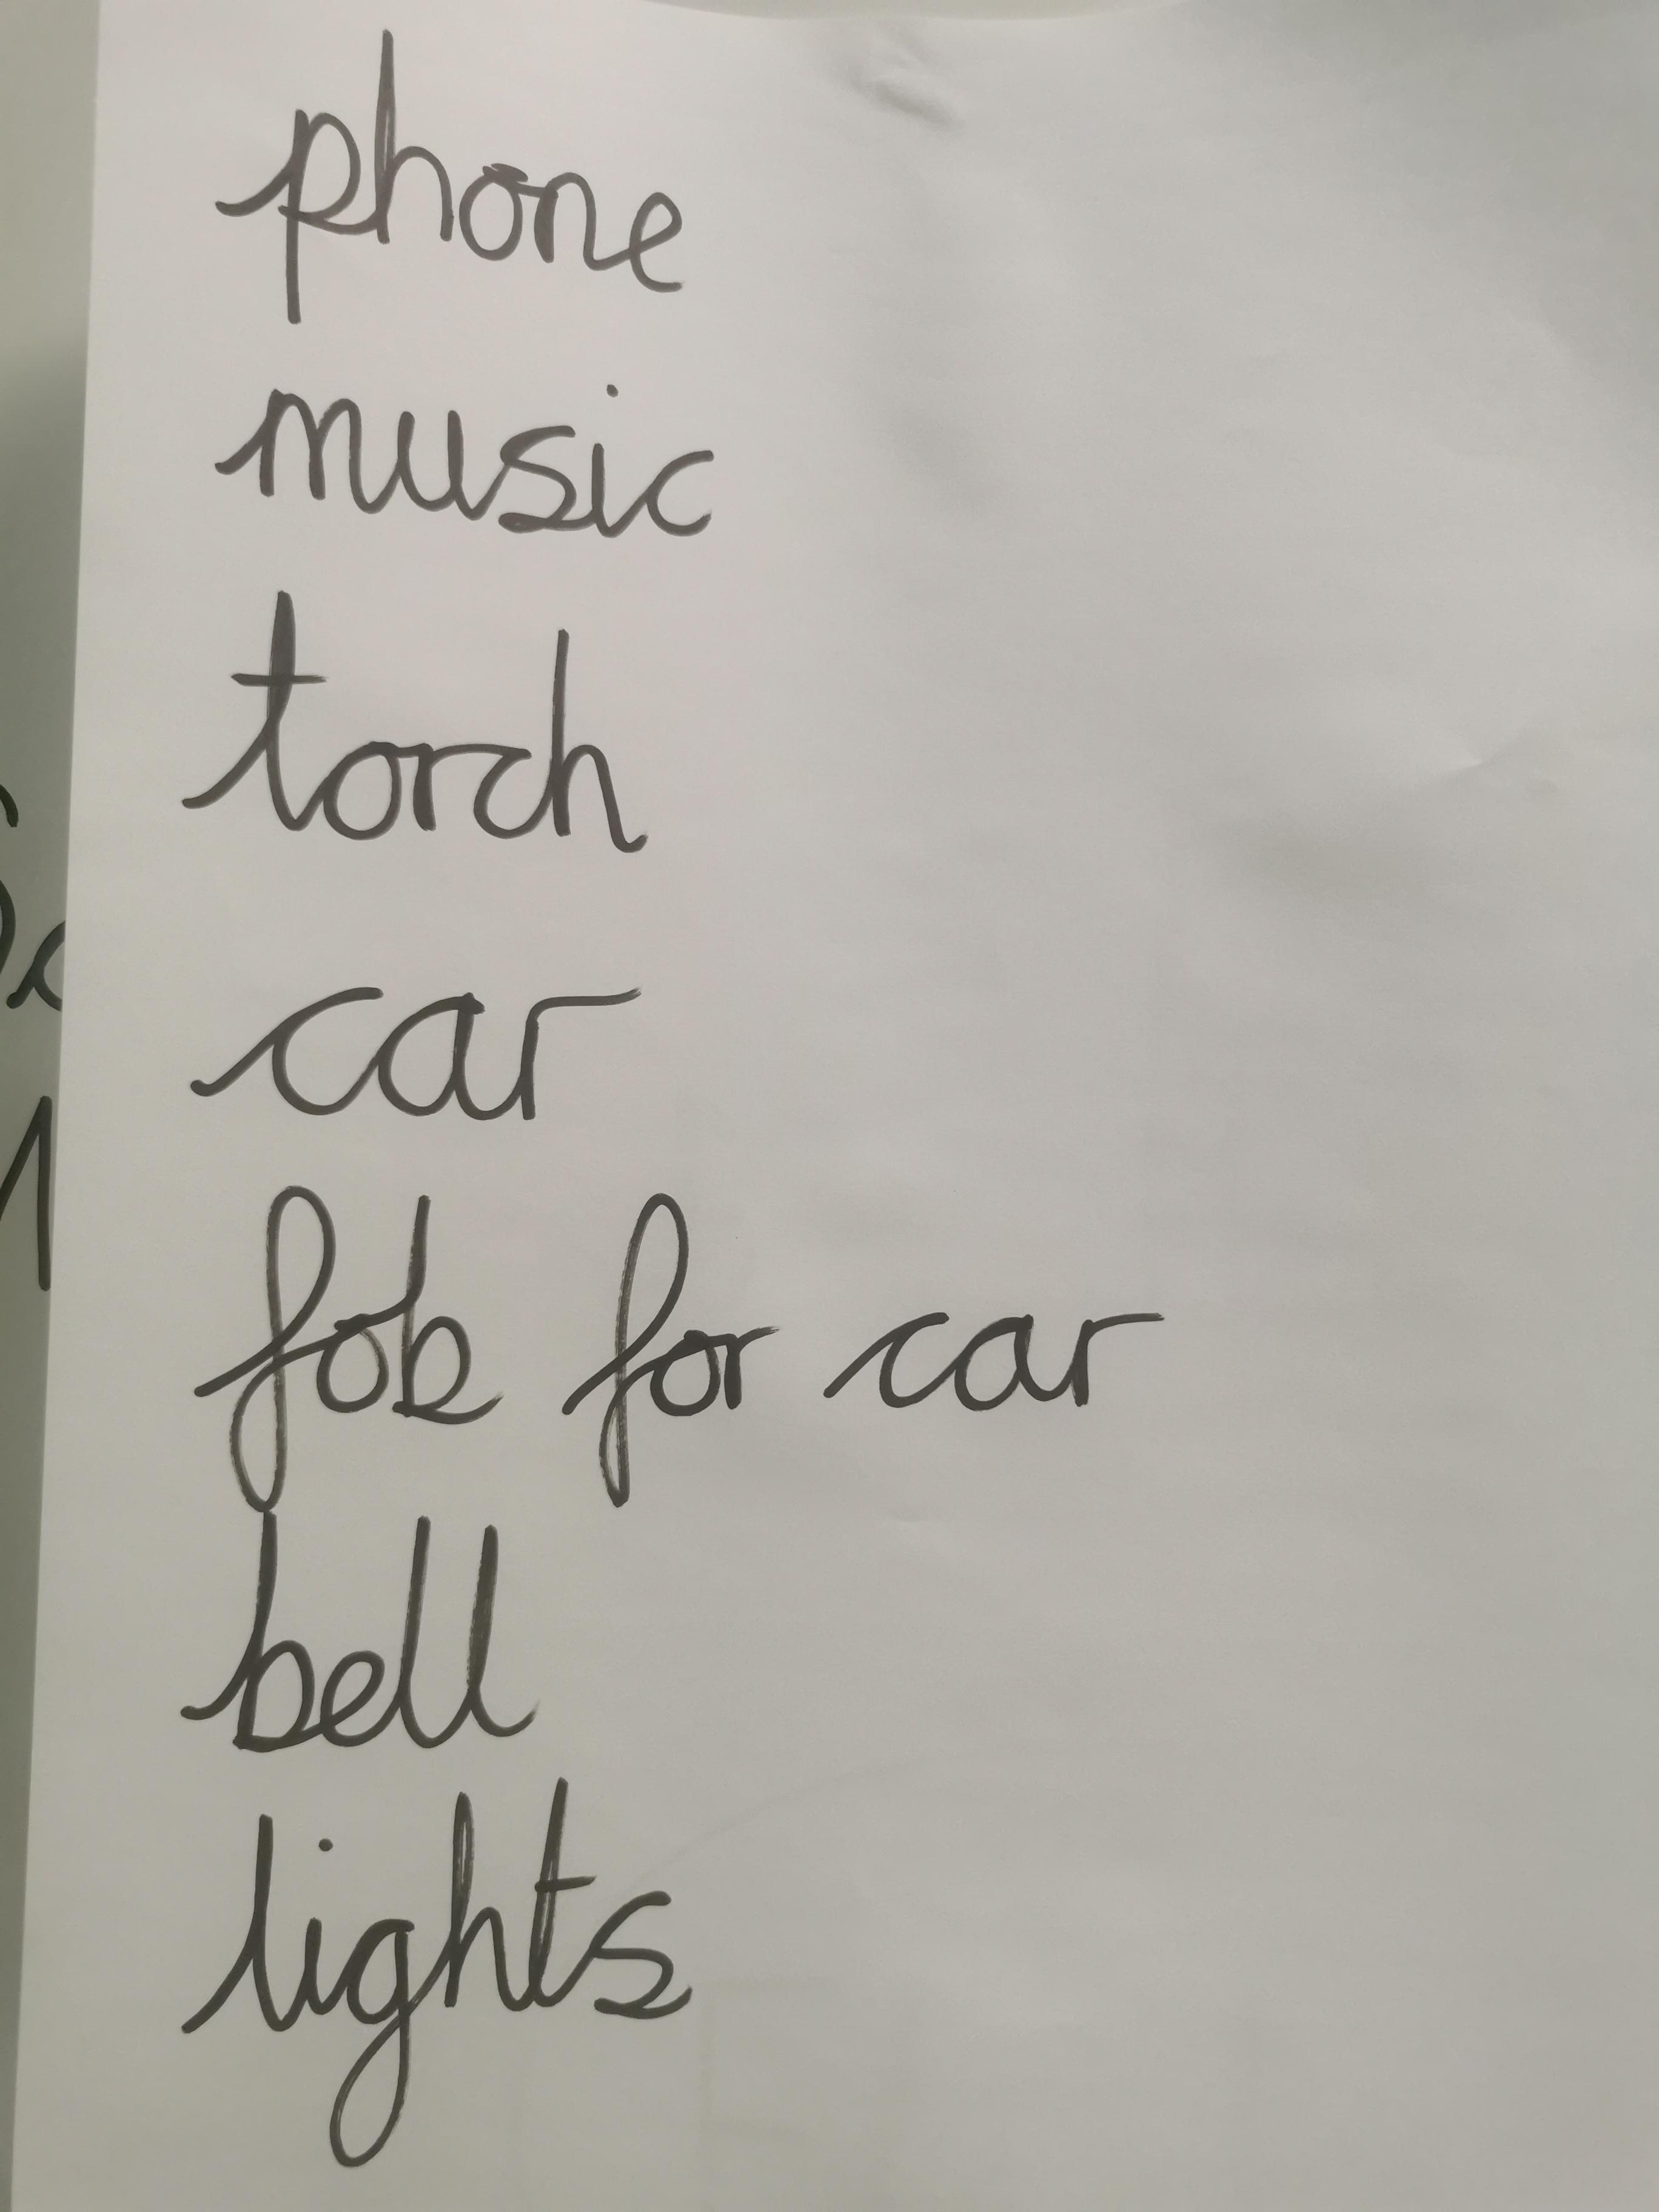 phone
music
torch
car
fob for car
bell
lights